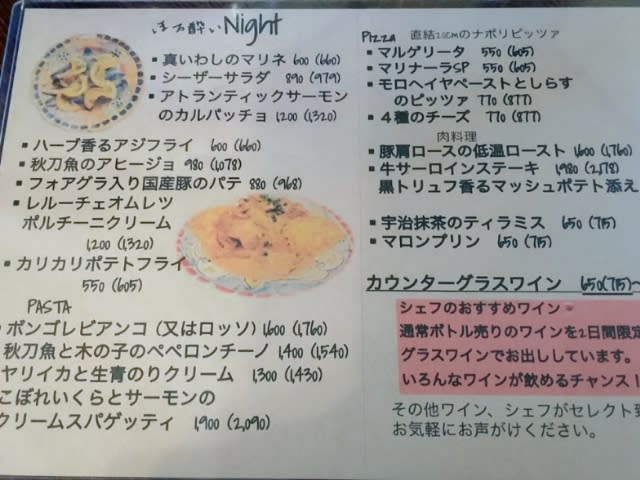 ほろ酔い Night
▪真いわしのマリネ 600 (660)
▪シーザーサラダ 890 (979)
▪アトランティックサーモン
のカルパッチョ 1200 (1,320)
▪ハーブ香るアジフライ 600 (660)
▪秋刀魚のアヒージョ 980 (1,078)
▪フォアグラ入り国産豚のパテ 880 (968)
▪レルーチェオムレツ
ポルチーニクリーム
1200 (1,320)
▪カリカリポテトフライ
550 (605)
PASTA
ボンゴレビアンコ (又はロッソ) 1,600 (1,760)
秋刀魚と木の子のペペロンチーノ 1,400 (1,540)
ヤリイカと生青のりクリーム 1,300 (1,430)
こぼれいくらとサーモンの
クリームスパゲッティ 1,900 (2,090)
Pizza 直径20cmのナポリピッツァ
▪マルゲリータ 550 (605)
▪マリナーラSP 550 (605)
▪モロヘイヤペーストとしらす
のピッツァ 770 (877)
▪4種のチーズ 770 (877)
肉料理
▪豚肩ロースの低温ロースト 1,600 (1,760)
▪牛サーロインステーキ 1,980 (2,178)
黒トリュフ香るマッシュポテト添え
▪宇治抹茶のティラミス 650 (715)
▪マロンプリン 650 (715)
カウンターグラスワイン 650(715)～
シェフのおすすめワイン
通常ボトル売りのワインを2日間限定
グラスワインでお出ししています。
いろんなワインが飲めるチャンス！
その他ワイン、シェフがセレクト
お気軽にお声がけください。